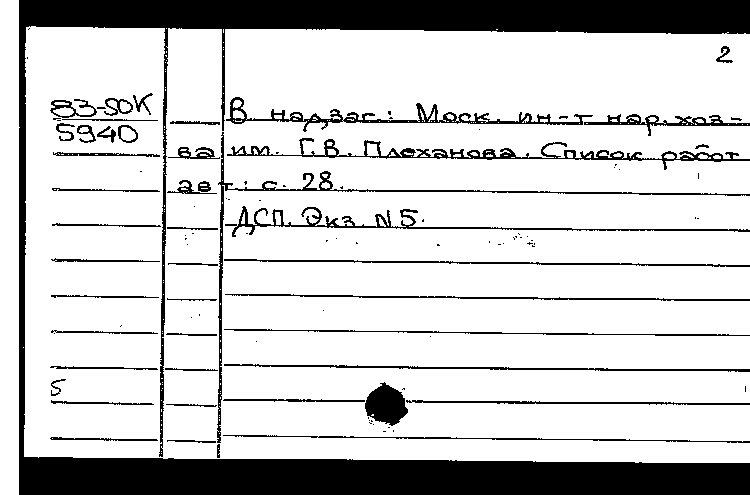 2
83-50К
5940
В надзаг.: Моск. ин-т нар. хоз-
ва им. Г.В. Плеханова. Список работ
авт.: с. 28.
ДСП. Экз. N 5.
5